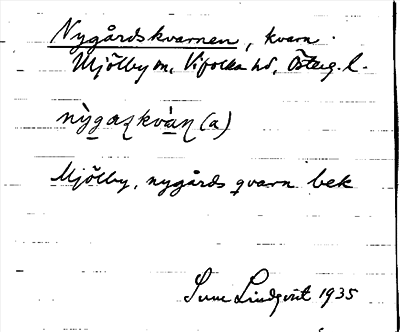 Nygårdskvarnen, kvarn.
Mjölby sn, Vifolka hd, Österg. l.
Mjölby, nygårds qvarn bek
Sven Lindqvist 1935